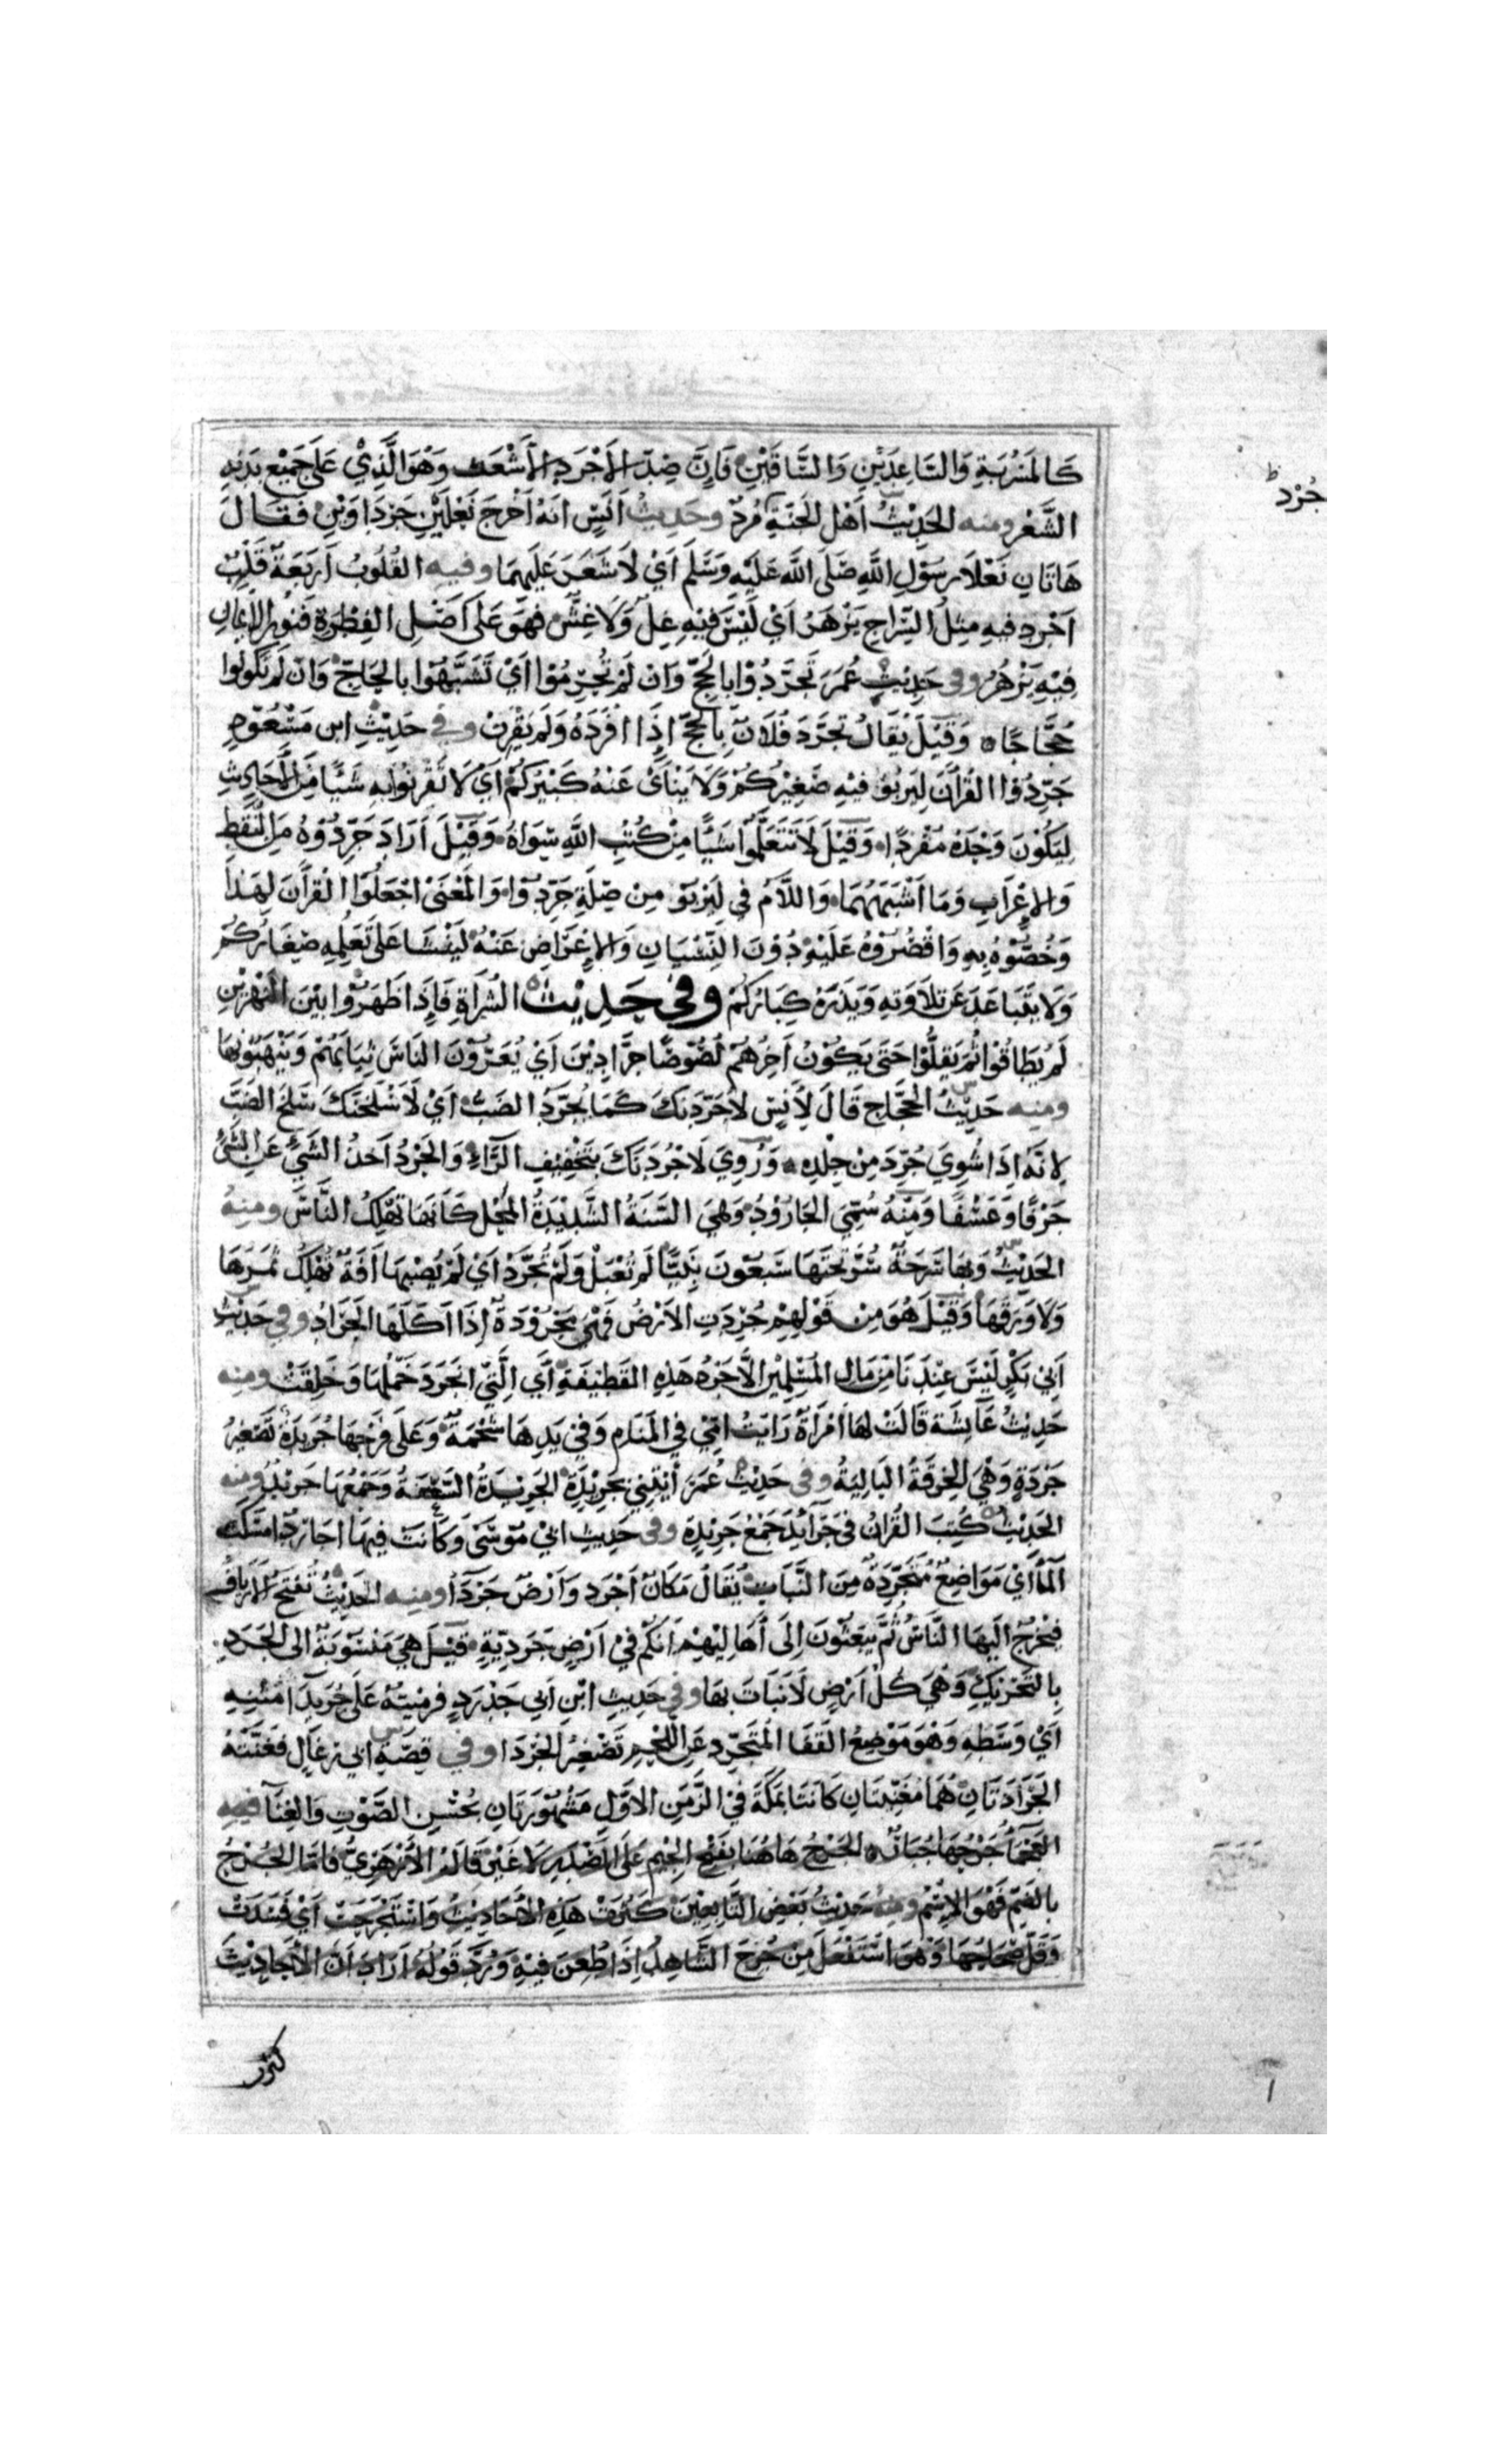 كَالْمَسْرُبَةِ وَالسَّاعِدَيْنِ وَالسَّاقَيْنِ فَإِنَّ ضِدَّ الأَجْرَدِ الأَشْعَر وَهُوَ الَّذِيْ عَلَى جَمِيْعِ بَدَنِهِ
جُرْد
الشَّعْر ومنه الحَدِيْثُ أَهْلُ الجَنَّةِ مُرْدٌ وحَدِيثُ أَنَسٍ أَنَّهُ أَخْرَجَ نَعْلَيْنِ جَرْدَاوَيْنِ فَقَالَ
هَاتَانِ نَعْلَا رَسُوْلِ اللَّهِ صَلَّى اللَّه عَلَيْهِ وَسَلَّمَ أَيْ لَا شَعَرَ عَلَيْهِمَا وفيه القُلُوبُ أَرْبَعَةٌ قَلْبٌ
أَجْرَد فيهِ مِثْلُ السِّرَاجِ يَزْهَرُ أَيْ لَيْسَ فِيْهِ غِلٌّ وَلَا غِشٌّ فَهُوَ عَلَى أَصْلِ الفِطْرَةِ فَنُورُ الإيمَانِ
فِيْهِ يَزْهَرُ وفى حَدِيْثِ عُمَرَ تَجَرَّدُوْا بِالحَجِّ وَانْ لَمْ تُحْرِمُوْا أَيْ تَشَبَّهُوْا بِالحَاجّ وَانْ لَمْ تَكُونُوا
حُجَّاجًا وَقِيْلَ يُقَالُ تَجَرَّدَ فُلَانٌ بِالحَجّ إِذَا أَفْرَدَهُ وَلَمْ يَقْرِنْ وفي حَدِيْثِ ابن مَسْعُوْدٍ
جَرِّدُوْا القُرْآنَ لِيَرْبُوَ فِيْهِ صَغِيْرُكُمْ وَلَا يَنْأَىٰ عَنْهُ كَبِيْرُكُمْ أَيْ لَا تَقْرِنُوا بِهِ شَيْئًا مِنَ الأَحَادِيْثِ
لِيَكُوْنَ وَحْدَهُ مُفْرَدًا وَقِيْلَ لَا تَتَعَلَّمُوْا شَيْئًا مِنْ كُتُبِ اللَّهِ سِوَاهُ وَقِيْلَ أَرَادَ جَرِّدُوْهُ مِنَ النَّقْطِ
وَالإِعْرَابِ وَمَا أَشْبَهَهُمَا وَاللَّامُ في لِيَرْبُوَ مِنْ صِلَةِ جَرِّدُوْا وَالْمَعْنَىٰ اجْعَلُوْا القُرْآنَ لِهَذَا
وَخُصُّوْهُ بِهِ وَاقْصُرُوْهُ عَلَيْهِ دُوْنَ النِّسْيَانِ وَالإِعْرَاضِ عَنْهُ لِيَنْشَأَ عَلَى تَعَلُّمِهِ صِغَارُكُمْ
وَلَا يَتَبَاعَدَ عَنْ تِلَاوَتِهِ وَتَدَبُّرِهِ كِبَارُكُمْ وَفي حَدِيْث الشُّرَاةِ فَإِذَا ظَهَرُوْا بَيْنَ النَّهْرَيْنِ
لَمْ يُطَاقُوْا ثُمَّ يَقِلُّوْا حَتَّى يَكُوْنُ آخِرُهُمْ لُصُوْصًا جَرَّادِيْنَ أَيْ يُعَرُّوْنَ النَّاسَ ثِيَابَهُمْ وَيَنْهَبُوْنَهَا
ومنه حَدِيْثُ الحَجَّاجِ قَالَ لِأَنَسٍ لَأُجَرِّدَنَّكَ كَمَا يُجَرَّدُ الضَّبُّ أَيْ لَأَسْلَخَنَّكَ سَلْخَ الضَّبِّ
لِانَّهُ إِذَا شُوِيَ جُرِّدَ مِنْ جِلْدِهِ وَرُوِيَ لَأَجْرُدَنَّكَ بِتَخْفِيْفِ الرَّاءِ وَالجَرْدُ أَخْذُ الشَّيْءِ عَنِ الشَّيْءِ
جَرْفًا وَعَسْفًا وَمِنْهُ سُمِّيَ الجَارُوْدُ وَهِيَ السَّنَةُ الشَّدِيْدَةُ المَحْلِ كَأَنَّهَا تُهْلِكُ النَّاسَ ومنه
الحَدِيْثُ وَبِهَا سَرْحَةٌ سُرَّ تَحْتَهَا سَبْعُوْنَ نَبِيًّا لَمْ تُعْبَلْ وَلَمْ تُجَرَّدْ أَيْ لَمْ تُصِبْهَا آفَةٌ تُهْلِكُ ثَمَرَهَا
وَلَا وَرَقَهَا وَقِيْلَ هُوَ مِنْ قَوْلِهِمْ جُرِدَتِ الأَرْضُ فَهْيَ مَجْرُوْدَةٌ إِذَا أَكَلَهَا الجَرَادُ وفي حَدِيْثِ
أَبِي بَكْرٍ لَيْسَ عِنْدَنَا مِنْ مَالِ المُسْلِمِيْنَ إِلَّا جَرْدُ هَذِهِ القَطِيْفَةِ أَي الَّتِيْ انْجَرَدَ خَمْلُهَا وَخَلِقَتْ ومنه
حَدِيْثُ عَائِشَةَ قَالَتْ لَهَا امْرَأَةٌ رَأَيْتُ أُمِّيْ فِي المَنَامِ وَفِيْ يَدِهَا شَحْمَةٌ وَعَلَى فَرْجِهَا جُرَيْدَةٌ تَصْغِيْرُ
جَرْدَةٍ وَهْيَ الخِرْقَةُ البَالِيَةُ وفى حَدِيْثِ عُمَرَ ائْتِنِيْ بِجَرِيْدَةٍ الجَرِيْدَةُ السَّعَفَةُ وَجَمْعُهَا جَرِيْدٌ ومنه
الحَدِيْثُ كُتِبَ القُرْآنُ فِي جَرَائِدَ جَمْعُ جَرِيْدَةٍ وفى حَدِيْثِ أَبِيْ مُوْسَى وَكَانَتْ فِيْهَا أَجَارِدُ أَمْسَكَت
المَاءَ أَيْ مَوَاضِعُ مُتَجَرِّدَةٌ مِنَ النَّبَاتِ يُقَالُ مَكَانٌ أَجْرَدُ وَأَرْضٌ جَرْدَاءُ ومنه الحَدِيْثُ تُفْتَحُ الأَرْيَافُ
فَيَخْرُجُ إِلَيْهَا النَّاسُ ثُمَّ يَبْعَثُوْنَ إِلَى أَهَالِيْهِمْ إِنَّكُمْ فِيْ أَرْضٍ جَرَدِيَّةٍ قِيْلَ هِيَ مَنْسُوْبَةٌ الى الجَرَدِ
بِالتَّحْرِيْكِ وَهْيَ كُلُّ أَرْضٍ لَا نَبَاتَ بِهَا وفي حَدِيثِ ابْنِ أَبِي حَدْرَدٍ فَرَمَيْتُهُ عَلَى جُرَيْدَاءِ مَتْنِهِ
أَيْ وَسَطِهِ وَهْوَ مَوْضِعُ القَفَا المُتَجَرِّدِ عَنِ اللَّحْمِ تَصْغِيْرُ الجَرْدَاء وفي قِصَّةِ أَبِي رِغَالٍ فَغَنَّتْهُ
الجَرَادَتَانِ هُمَا مُغَنِّيَتَانِ كَانَتَا بِمَكَّةَ فِيْ الزَّمَنِ الأَوَّلِ مَشْهُوْرَتَانِ بِحُسْنِ الصَّوْتِ وَالغِنَاءِ فيه
العَجْمَاءُ جَرْحُهَا جُبَارٌ الجَرْحُ هَاهُنَا بِفَتْحِ الجِيْمِ عَلَى المَصْدَرِ لَا غَيْرُ قَالَهُ الأَزْهَرِيُّ فَأَمَّا الجُرْحُ
بِالضَّمِّ فَهْوَ الإِسْمُ ومنهُ حَدِيْثُ بَعْضِ التَّابِعِيْنَ كَثُرَتْ هَذِهِ الأَحَادِيْثُ وَاسْتَجْرَحَتْ أَيْ فَسَدَتْ
وَقَلَّ صِحَاحُهَا وَهْوَ اسْتَفْعَلَ مِنْ جَرَحَ الشَّاهِدَ إِذَا طَعَنَ فِيْهِ وَرَدَّ قَوْلَهُ أَرَادَ أَنَّ الأَحَادِيْثَ
كثر